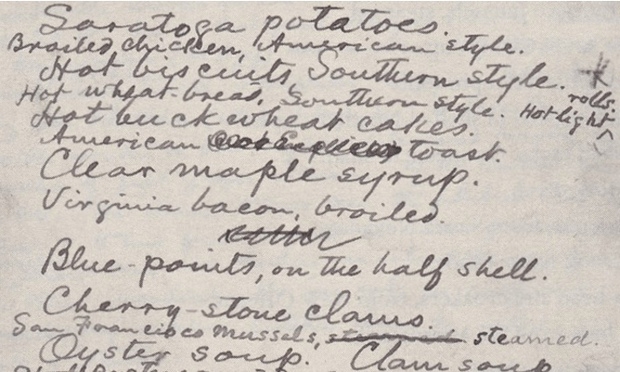 Saratoga potatoes.
Broiled chicken, American style.
Hot biscuits, Southern style.
Hot wheat-bread, Southern style. Hot light rolls.
Hot buckwheat cakes.
American toast.
Clear maple syrup.
Virginia bacon, broiled.
Blue-points, on the half shell.
Cherry-stone clams.
San Francisco mussels, steamed steamed.
Oyster soup. Clam soup